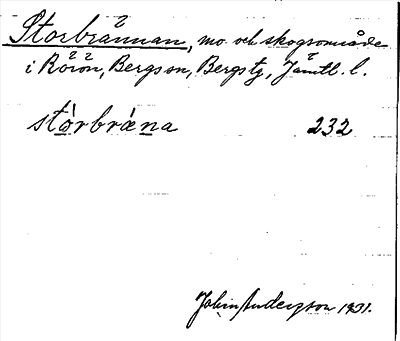 Storbrännan, mo och skogsområde
i Rörön, Bergs sn, Bergs tg, Jämtl. l.
stórbrǽna 232
John Anderzson 1931.